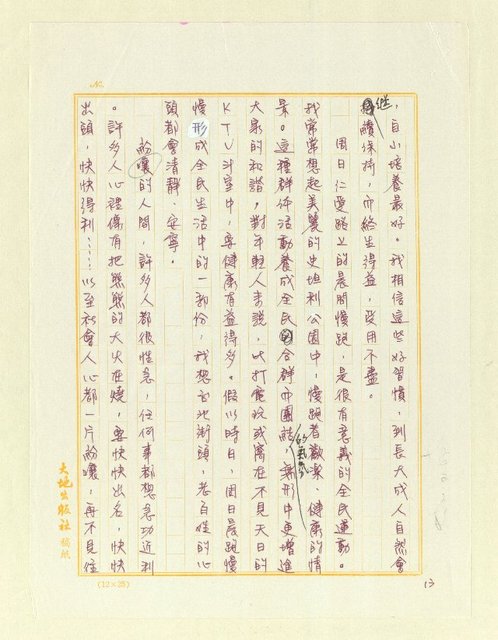 No.
，自小培養最好。我相信這些好習慣，到長大成人自然會
繼續保持，而終生得益，受用不盡。
周日仁愛路上的晨間慢跑，是很有意義的全民運動。
我常常想起美麗的史坦利公園中，慢跑者歡樂、健康的情
景。這種群体活動養成全民合群而團結的氣勢，無形中更增進
大眾的和諧，對年輕人來說，比打電玩或窩在不見天日的
KTV斗室中，要健康有益得多。假以時日，周日晨跑慢
慢形成全民生活中的一部份，我想台北街頭，老百姓的心
頭都會清靜、安寧。
紛嚷的人間，許多人都很性急，任何事都想急功近利
。許多人心裡像有把熊熊的大火在燒，要快快出名，快快
出頭，快快得利……以至社會人心都一片紛嚷，再不見往
大地出版社 稿紙
(12×25)
13